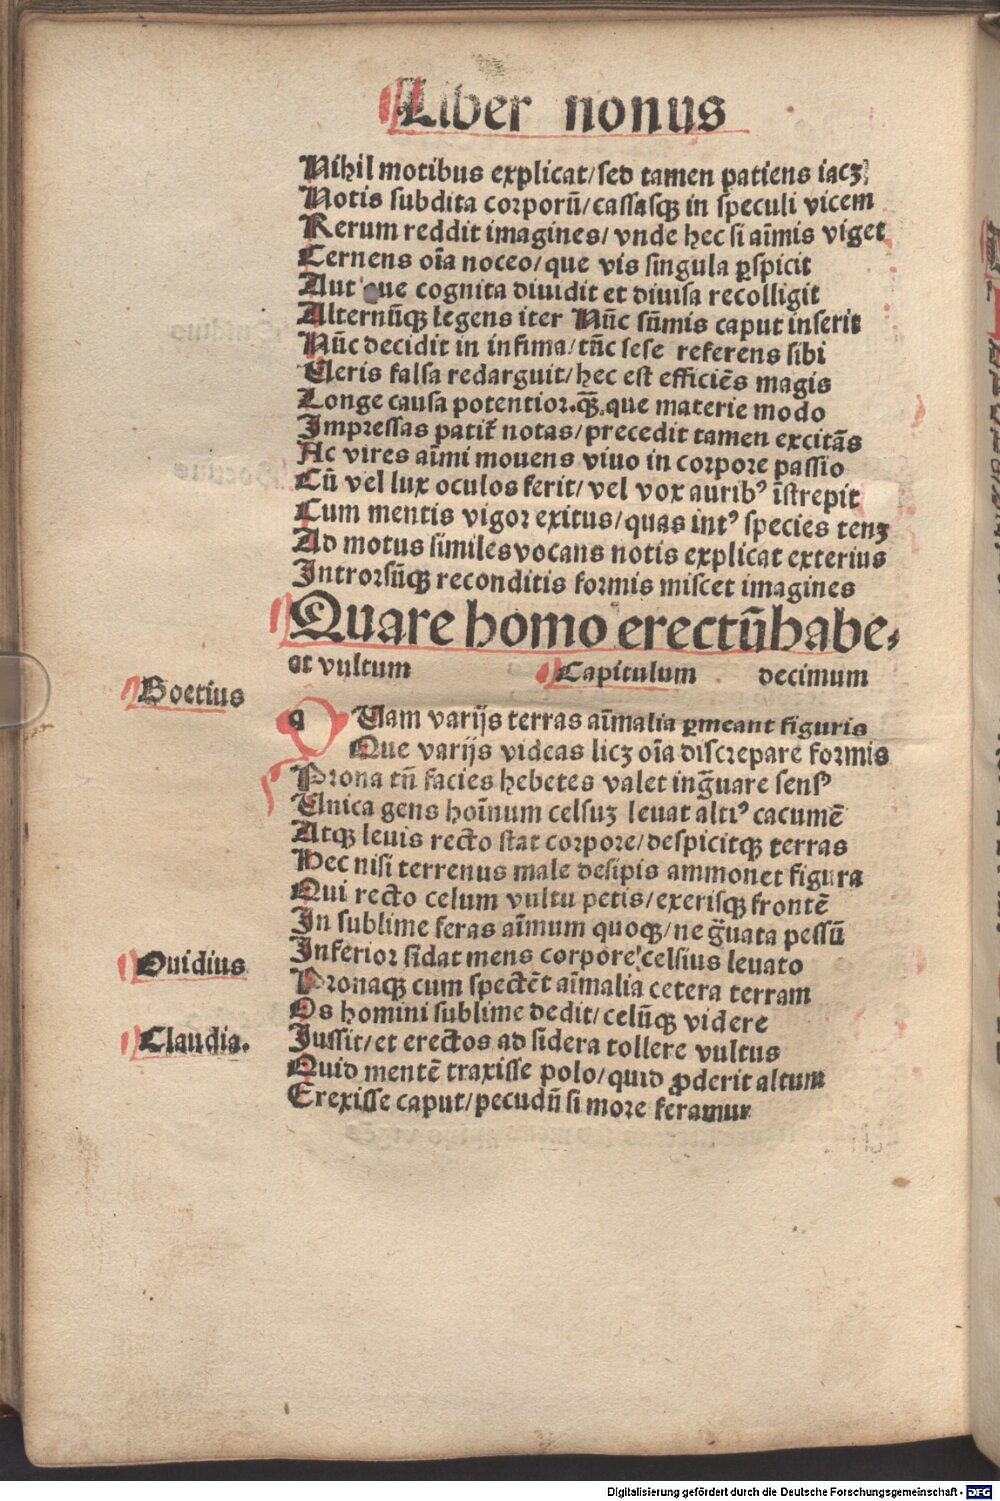 Liber nonus
Nihil motibus explicat/sed tamen patiens iacꝫ
Notis subdita corporū/cassasqꝫ in speculi vicem
Rerum reddit imagines/vnde hec si aīmis viget
Cernens oīa noceo/que vis singula ꝑspicit
Aut que cognita diuidit et diuisa recolligit
Alternūqꝫ legens iter Nūc sūmis caput inserit
Nūc decidit in infima/tūc sese referens sibi
Ueris falsa redarguit/hec est efficiēs magis
Longe causa potentior.qꝫ̄.que materie modo
Impressas patit̄ notas/precedit tamen excitās
Ac vires aīmi mouens viuo in corpore passio
Cū vel lux oculos ferit/vel vox auribꝰ īstrepit
Cum mentis vigor exitus/quas intꝰ species tenꝫ
Ad motus similes vocans notis explicat exterius
Introrsūqꝫ reconditis formis miscet imagines
Quare homo erectū habe⸗
at vultum Capitulum decimum
Boetius
qUam varijs terras aīmalia ꝑmeant figuris
Que varijs videas licꝫ oīa discrepare formis
Prona tn̄ facies hebetes valet ingᷓuare sensꝰ
Unica gens hoīnum celsuꝫ leuat altiꝰ cacumē
Atqꝫ leuis recto stat corpore/despicitqꝫ terras
Hec nisi terrenus male desipis ammonet figura
Qui recto celum vultu petis/exerisqꝫ frontē
In sublime feras aīmum quoqꝫ/ne gᷓuata pessū
Ouidius
Inferior sidat mens corpore celsius leuato
Pronaqꝫ cum spectēt aīmalia cetera terram
Os homini sublime dedit/celūqꝫ videre
Claudia.
Jussit/et erectos ad sidera tollere vultus
Quid mentē traxisse polo/quid ꝓderit altum
Erexisse caput/pecudū si more feramur
Digitalisierung gefördert durch die Deutsche Forschungsgemeinschaft - DFG